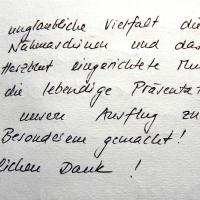 unglaubliche Vielfalt die
Nähmaschinen und das
Herzblut eingerichtete Mu
die lebendige Präsentat
unseren Ausflug zu
Besonderem gemacht!
lichen Dank !